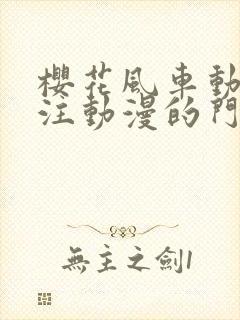 櫻花風車動
注動漫的門
無主之劍1